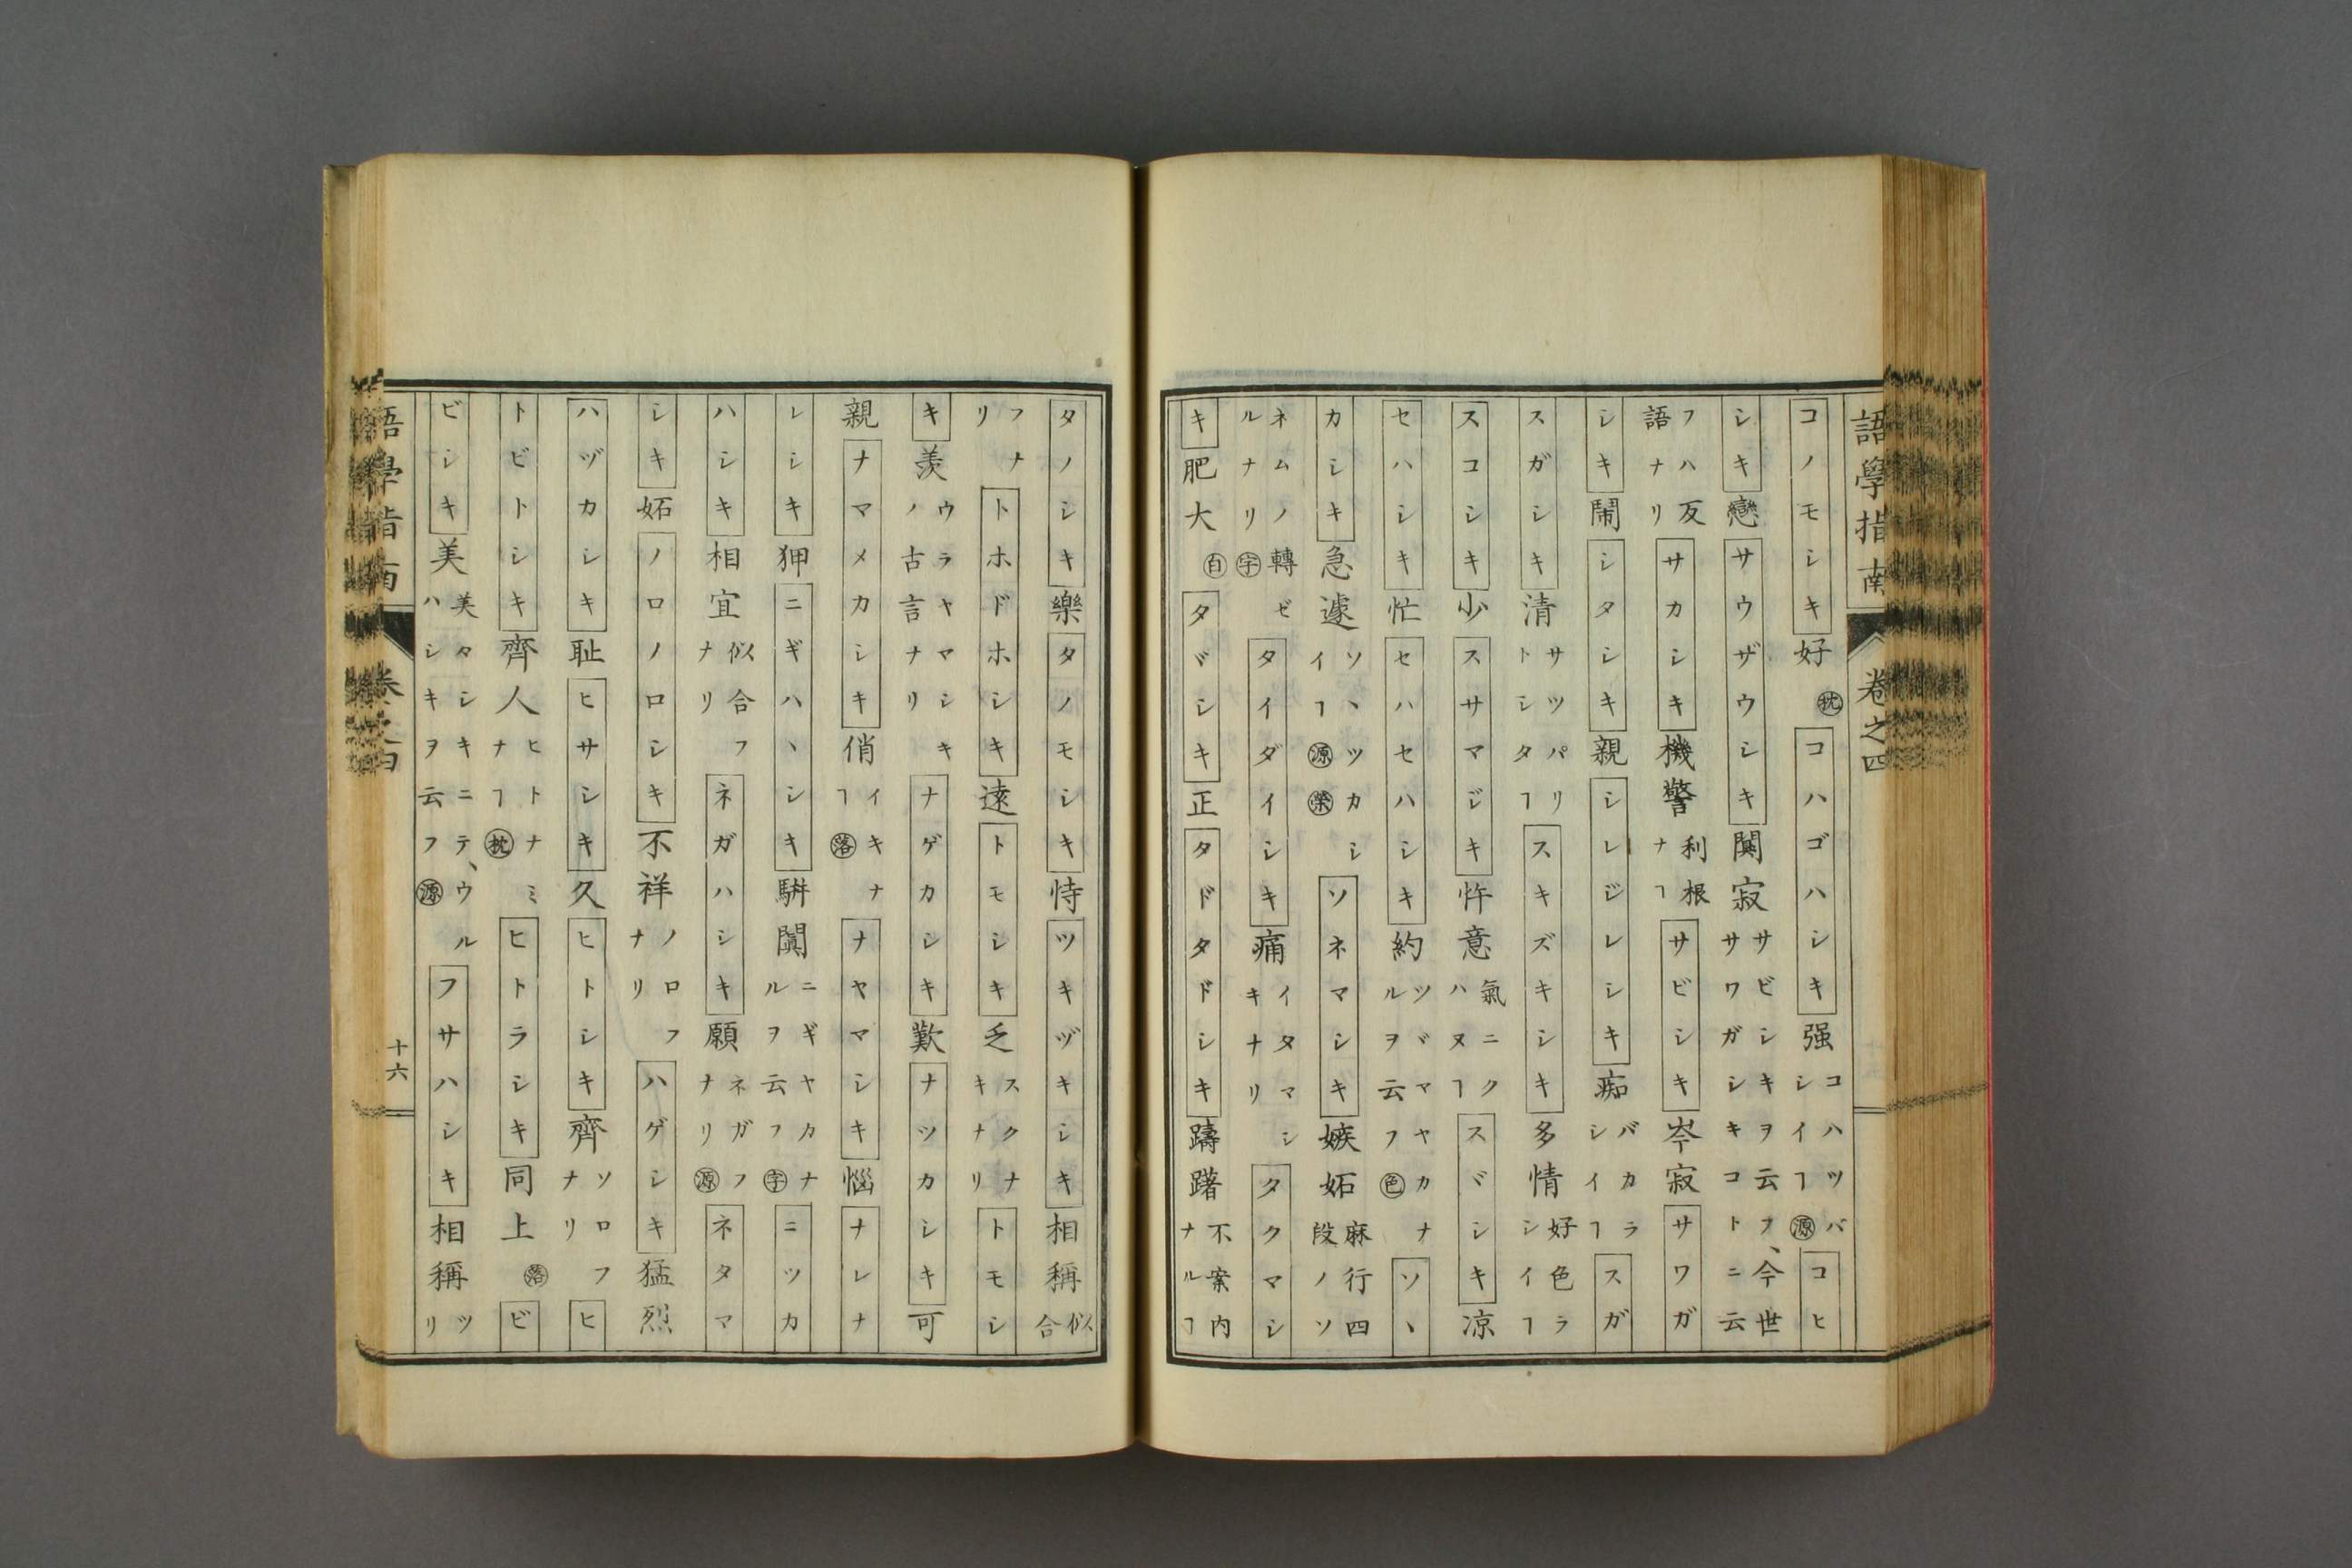 語學指南 卷之四
コノモシキ好㊭コハゴハシキ强コハツバシイヿ㊮コヒ
シキ戀サウザウシキ闃寂サビシキヲ云フ、今世サワガシキコトニ云
フハ反語ナリサカシキ機警利根ナヿサビシキ岑寂サワガ
シキ鬧シタシキ親シレジレシキ痴バカラシイヿスガ
スガシキ清サツパリトシタヿスキズキシキ多情好色ラシイヿ
スコシキ少スサマジキ忤意氣ニクハヌヿスヾシキ凉
セハシキ忙セハセハシキ約ツヾマヤカナルヲ云フ色ソヽ
カシキ急遽ソヽツカシイヿ源榮ソネマシキ嫉妬麻行四段ノソ
ネムノ轉ゼルナリ字タイダイシキ痛イタマシキナリタクマシ
キ肥大白タヾシキ正タドタドシキ躊躇不案内ナルヿ
タノシキ樂タノモシキ恃ツキヅキシキ相稱似合
フナリトホドホシキ遠トモシキ乏スクナキナリトモシ
キ羨ウラヤマシキノ古言ナリナゲカシキ歎ナツカシキ可
親ナマメカシキ俏イキナヿ落ナヤマシキ惱ナレナ
レシキ狎ニギハヽシキ駢闐ニギヤカナルヲ云フ字ニツカ
ハシキ相宜似合フナリネガハシキ願ネガフナリ源ネタマ
シキ妬ノロノロシキ不祥ノロフナリハゲシキ猛烈
ハヅカシキ耻ヒサシキ久ヒトシキ齊ソロフナリヒ
トビトシキ齊人ヒトナミナヿ枕ヒトラシキ同上落ビ
ビシキ美美々シキニテ、ウルハシキヲ云フ源フサハシキ相稱ツリ
語學指南 卷之四 十六